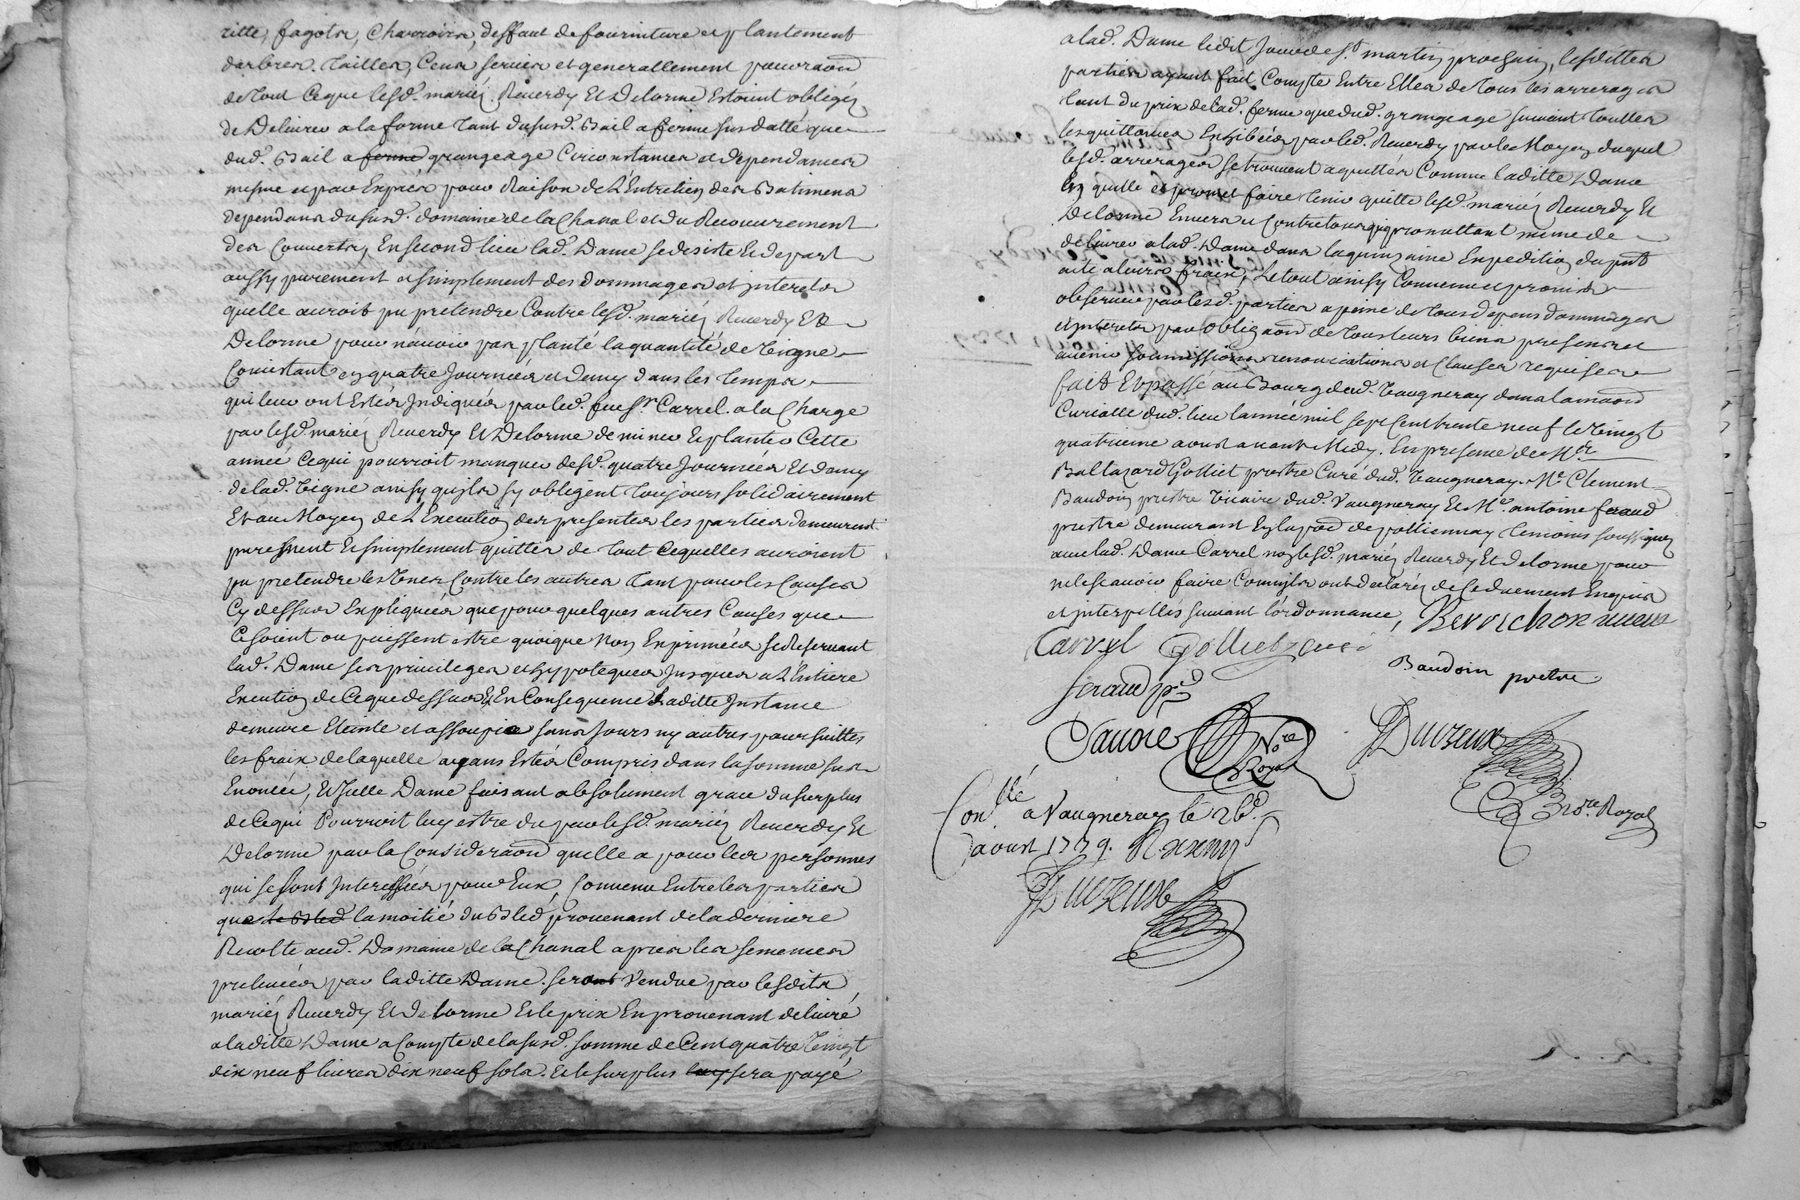 fagots, Charrois, deffaut de fourniture et plantement
darbres. Tailles, Cens servis et generallement pour raon
de tout Ceque lesd. mariez Reverdy Et Delorme Estoint obligéz
de Delivrer a la forme tant dususd. Bail a ferme susdatté que
dud. Bail a ferme grangeage Circonstances et dependances
mesme et par Exprés pour Raison de L'Entretien des Batimens
dependans dususd. domaine de la Chanal et du Recouvrement
des Couverts, En second lieu lad. Dame se desiste Et depart
aussy purement et simplement des dommages et interets
quelle auroit pu pretendre Contre lesd. mariez Reverdy Et
Delorme pour n'avoir pas planté la quantité de Vigne
Consistant en quatre Journées et demy dans les temps
qui leur ont Estés Indiqués par led. feu Sr. Carrel. a la Charge
par lesd. mariez Reverdy Et Delorme de miner Et planter Cette
année Cequi pourroit manquer desd. quatre Journées Et demy
de lad. Vigne ainsy quils sy obligent toujours solidairement
Et au Moyen de L'Execution des presentes les parties demeurent
purement Et simplement quittes de tout Cequelles auroient
pu pretendre les Unes Contre les autres tant pour les Causes
Cy dessus Expliquées que pour quelques autres Causes que
Cesoient ou puissent estre quoique non Exprimées se Reservant
lad. Dame ses privileges et hypoteques Jusques a L'Entiere
Execution de Ceque dessus & En Consequence Laditte Instance
demeure Eteinte et assoupie sans Jours ny autres poursuittes
les fraix de laquelle ayans Estés Compris dans la somme sus
Enoncée, Et Icelle Dame faisant absolument grace du surplus
de Cequi Pourroit luy estre du par lesd. mariez Reverdy Et
Delorme par la Consideraon quelle a pour les personnes
qui se sont Interessées pour Eux, Convenu Entre les parties
que le Bled la moitié du Bled provenant de la derniere
Recolte aud. Domaine de la Chanal apres les semences
prelevées par laditte Dame. seront Vendue par lesdits
mariez Reverdy Et Delorme Et le prix En provenant delivré
a laditte Dame a Compte de lasusd. somme de Cent quatre Vingt
dix neuf livres dix neuf sols. Et le surplus sera payé
a lad. Dame ledit Jour de St. martin prochain, lesdittes
parties ayant fait Compte Entre Elles de tous les arrerages
tant du prix de lad. ferme que dud. grangeage suivant touttes
les quittances Exhibées par led. Reverdy par le Moyen duquel
lesd. arrerages se trouvent aquittés Comme laditte Dame
En quitte et promet faire tenir quitte lesd. mariez Reverdy Et
Delorme Envers et Contre tous promettant meme de
delivrer a lad. Dame dans la quinzaine Expedition du pnt
acte a leurs fraix, Le tout ainsy Convenu et promis
observer par lesd. parties a peine de tous depens dommages
Et interets par obligaon de tous leurs biens presens et
avenir soumissions renonciations et Clauses requises
fait Et passé au Bourg dud. Vaugneray dans la maison
Curialle dud. lieu l'année mil sept Cent trente neuf le Vingt
quatrieme aoust avant Midy. En presence de Mre
Baltazard Golliet prestre Curé dud. Vaugneray. Me Clement
Baudoin prestre Vicaire dud. Vaugneray Et Me. antoine feraud
prestre demeurant En la par. de pollionnay temoins soussignez
avec lad. Dame Carrel non lesd. mariez Reverdy Et Delorme pour
ne le scavoir faire Comm'ils ont declarés de Ce deuement Enquis
et interpellés suivant l'ordonnance, Berrichon
Carrel Golliet Curé
Baudoin prêtre
feraud p.
Savoie Nore Royal
Duvzeux Nore. Royal
Conllé a Vaugneray le 26.
aoust 1739.
Duvzeux